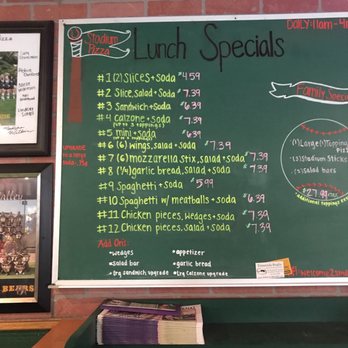 Stadium
Pizza
Lunch Specials
DAILY: 11am-4
#1 (2) Slices + Soda $4.59
#2 Slice, Salad + Soda $7.39
#3 Sandwich + Soda $6.39
#4 calzone + soda $7.39
(up to 3 toppings)
#5 mini + soda $6.39
#6 (6) wings, salad + soda $7.39
#7 (6) mozzarella stix, salad + soda $7.39
#8 (1/4) garlic bread, salad + soda $7.39
#9 Spaghetti + soda $5.99
#10 Spaghetti w/ meatballs + soda $6.39
#11 Chicken pieces, wedges + soda $7.39
#12 Chicken pieces, salad + soda $7.39
UPGRADE
to a large
soda .75¢
Add Ons:
• wedges
• salad bar
• lrg sandwich upgrade
• appetizer
• garlic bread
• Lrg calzone upgrade
Family Spec
1 Large 1 Topping
Pizz
(2) Stadium Sticks
(2) salad bars
$27.99
additional toppings
#welcome2
BEARS